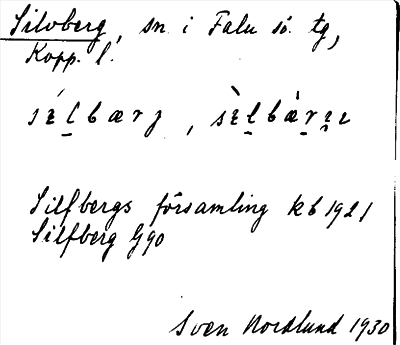 Silvberg, sn i Falu sö. tg,
Kopp. l.
Silfbergs församling kb 1921
Silfberg G90
Sven Nordlund 1930